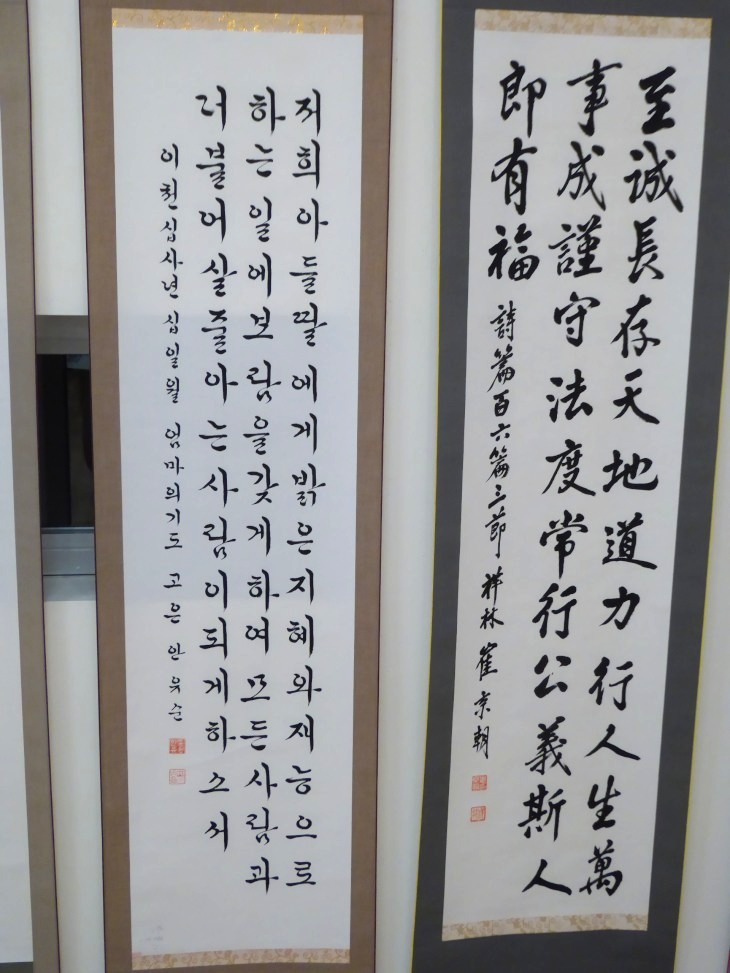 至誠長存天地道力行人生萬
事成謹守法度常行公義斯人
即有福
詩篇百六篇三節 祥林 崔京朝
저희아들딸에게밝은지혜와재능으로
하는일에보람을갖게하여모든사람과
더불어살줄아는사람이되게하소서
이천십사년십일월 엄마의기도 고은